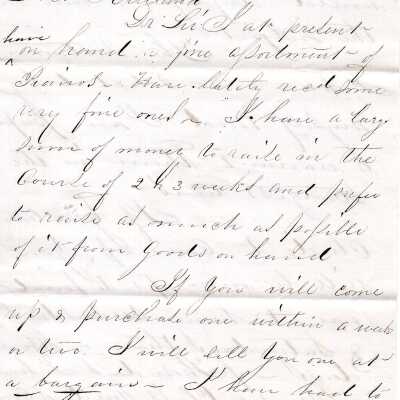 Dr Sir I at present
have
on hand a fine assortment of
Pianos - Have lately recd some
very fine ones - I have a larg
sum of money to raise in the
Course of 2 & 3 weeks and prefer
to raise as much as possible
of it from goods on hand
If You will come
up & purchase one within a week
or two. I will sell You one at
a bargain - I have had to